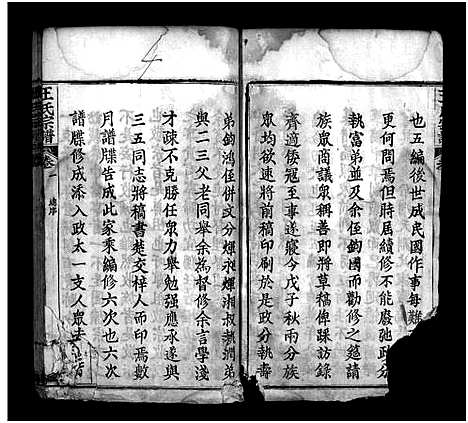 也五編後世成民國作事每難
更何問焉但時屆續修不能廢弛政分
執富弟並及余侄鈞國而勸修之筵請
族眾商議眾稱善即將草稿俾踩訪錄
齊適倭寇至事遂寢今戊子秋兩分族
眾均欲速將前稿印刷於是政分執壽
弟鈞鴻侄併文分煇永煇湘叔執潤弟
與二三父老同舉余為督修余言學淺
才疎不克勝任眾力舉勉强應承遂與
三五同志將稿書楚交梓人而印焉數
月譜牒告成此家乘編修六次也六次
譜牒修成添入政太一支人眾
王氏宗譜
卷一